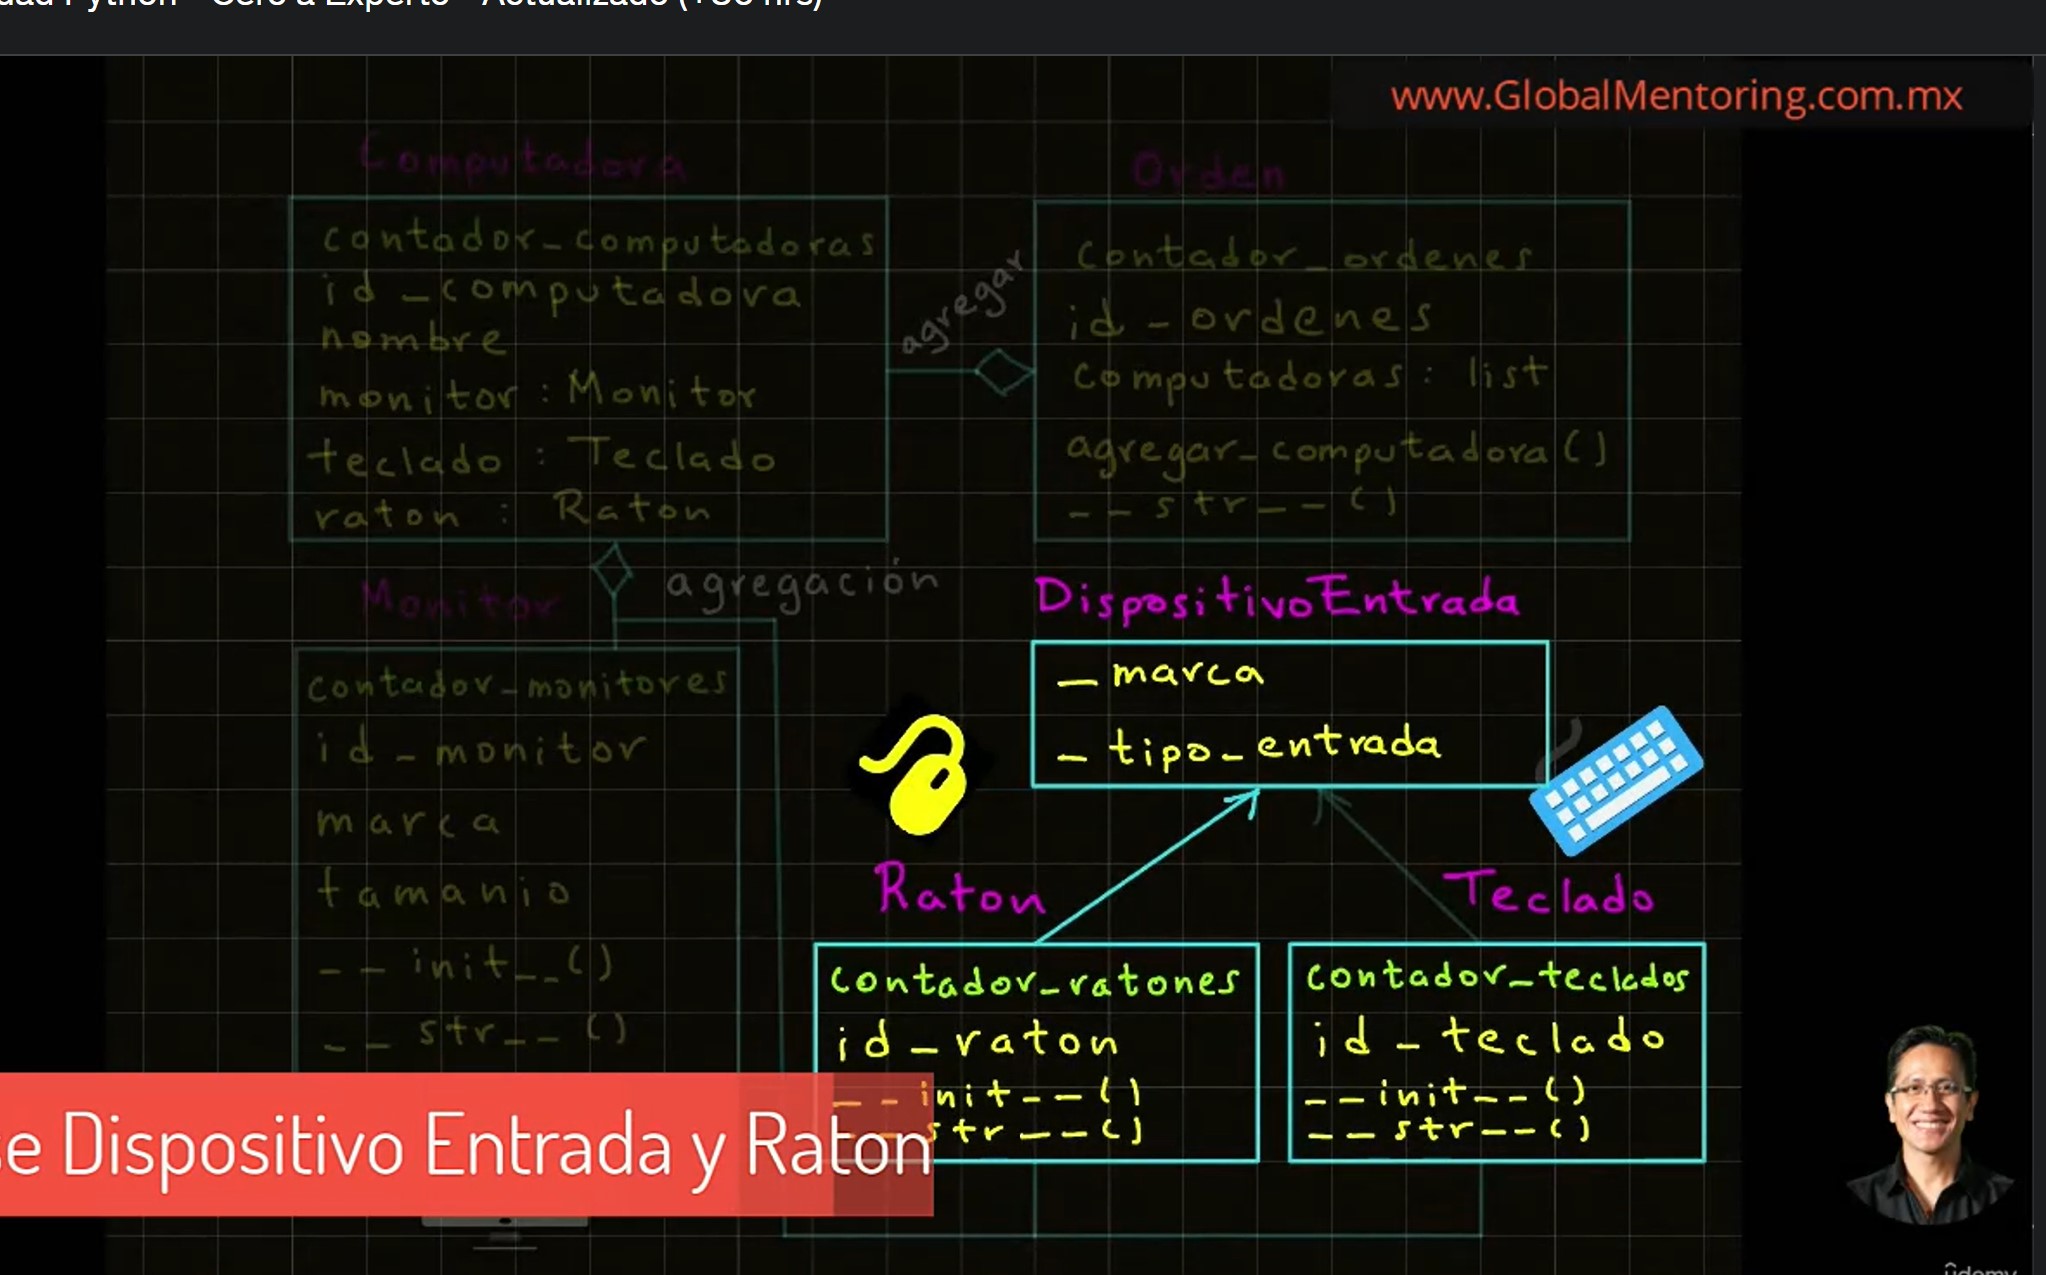 Python - Cero a Experto - Actualizado (+
www.GlobalMentoring.com.mx
Computadora
contador_computadoras
id_computadora
nombre
monitor : Monitor
teclado : Teclado
raton : Raton
agregar
Orden
contador_ordenes
id_ordenes
computadoras : list
agregar_computadora()
__str__()
agregación
Monitor
contador_monitores
id_monitor
marca
tamanio
__init__()
__str__()
DispositivoEntrada
_marca
_tipo_entrada
Raton
contador_ratones
id_raton
__init__()
str__()
Teclado
contador_teclados
id_teclado
__init__()
__str__()
se Dispositivo Entrada y Raton